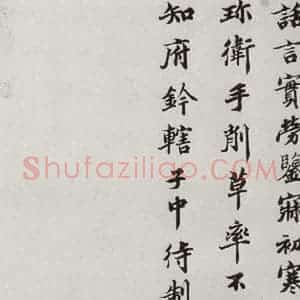 話言實勞鑒寐初寒
珎衛手削草率不
知府鈐轄子中待制
Shufaziliao.COM